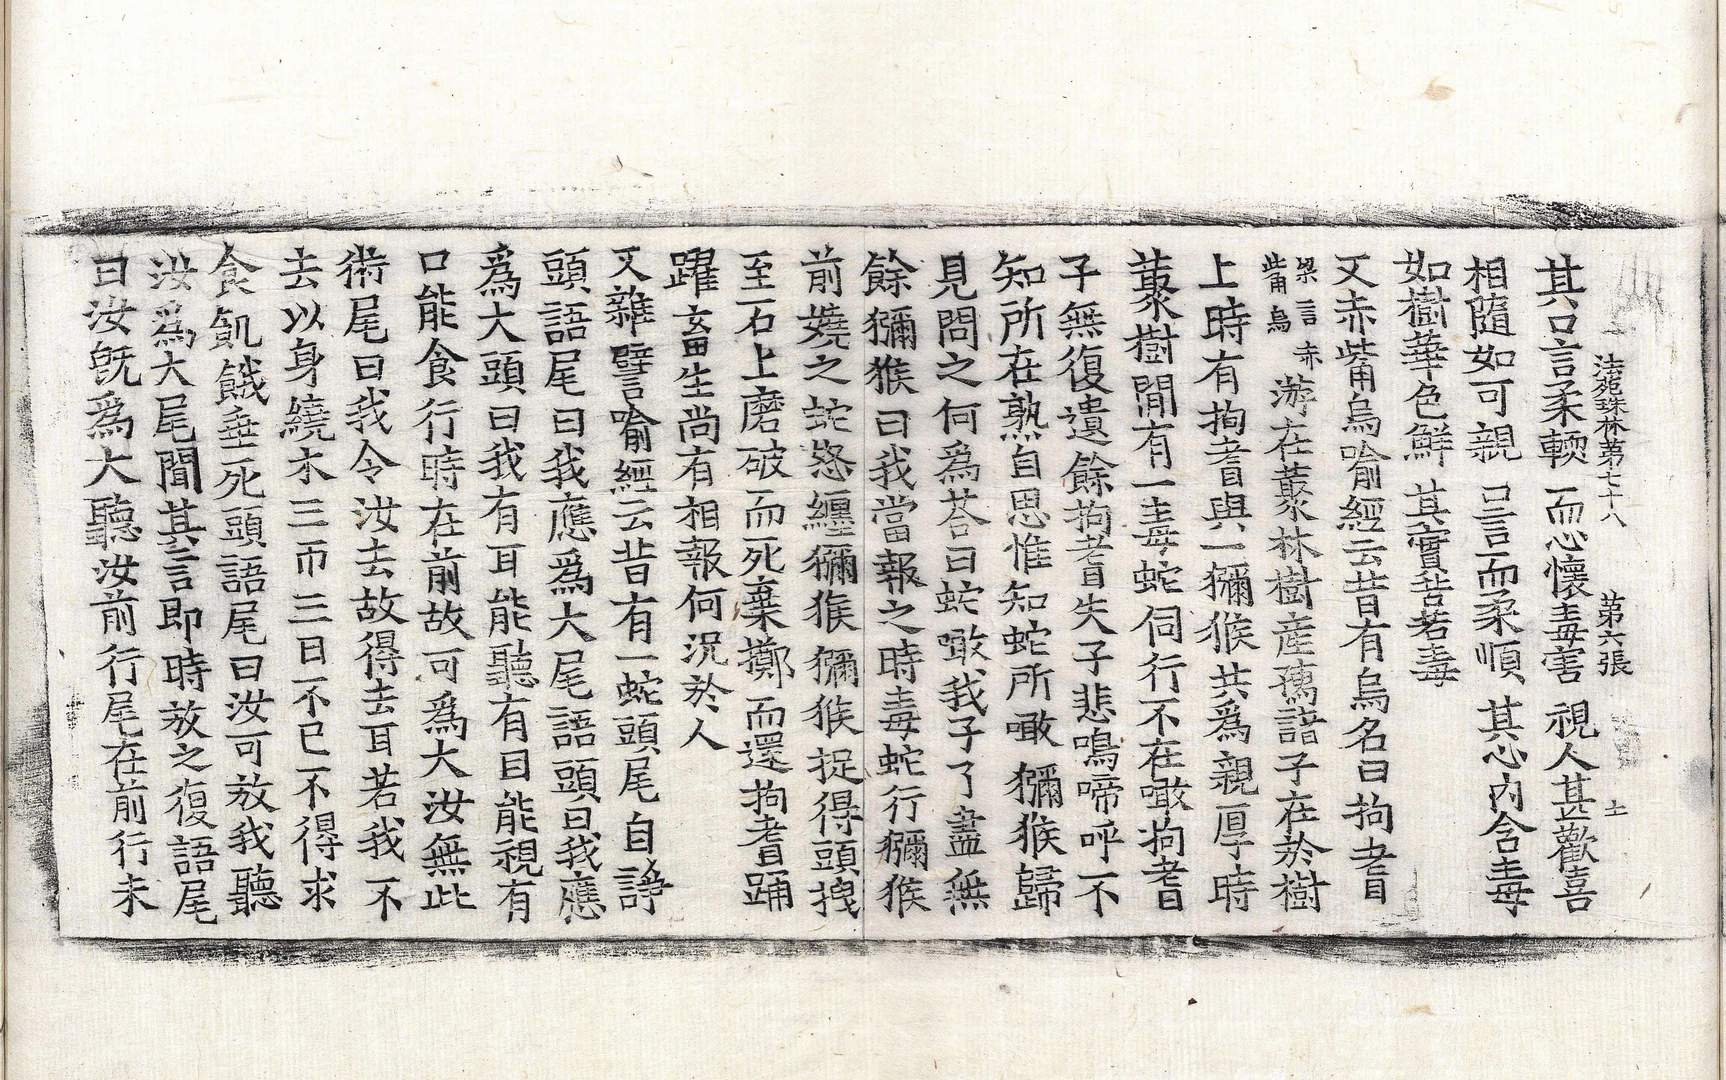 法苑珠林第七十八　第六張　士
其口言柔輭　而心懷毒害　視人甚歡喜
相隨如可親　口言而柔順　其心內含毒
如樹華色鮮　其實苦若毒
又赤觜烏喻經云昔有烏名曰拘耆
梁言赤觜烏游在叢林樹產孺諳子在於樹
上時有拘耆與一獼猴共爲親厚時
叢樹閒有一毒蛇伺行不在噉拘耆
子無復遺餘拘耆失子悲鳴啼呼不
知所在熟自思惟知蛇所噉獼猴歸
見問之何爲荅曰蛇噉我子了盡無
餘獼猴曰我當報之時毒蛇行獼猴
前嬈之蛇怒纏獼猴獼猴捉得頭拽
至石上磨破而死棄擲而還拘耆踊
躍畜生尚有相報何況於人
又雜譬喻經云昔有一蛇頭尾自諍
頭語尾曰我應爲大尾語頭曰我應
爲大頭曰我有耳能聽有目能視有
口能食行時在前故可爲大汝無此
術尾曰我令汝去故得去耳若我不
去以身繞木三帀三日不已不得求
食飢餓垂死頭語尾曰汝可放我聽
汝爲大尾聞其言即時放之復語尾
曰汝旣爲大聽汝前行尾在前行未